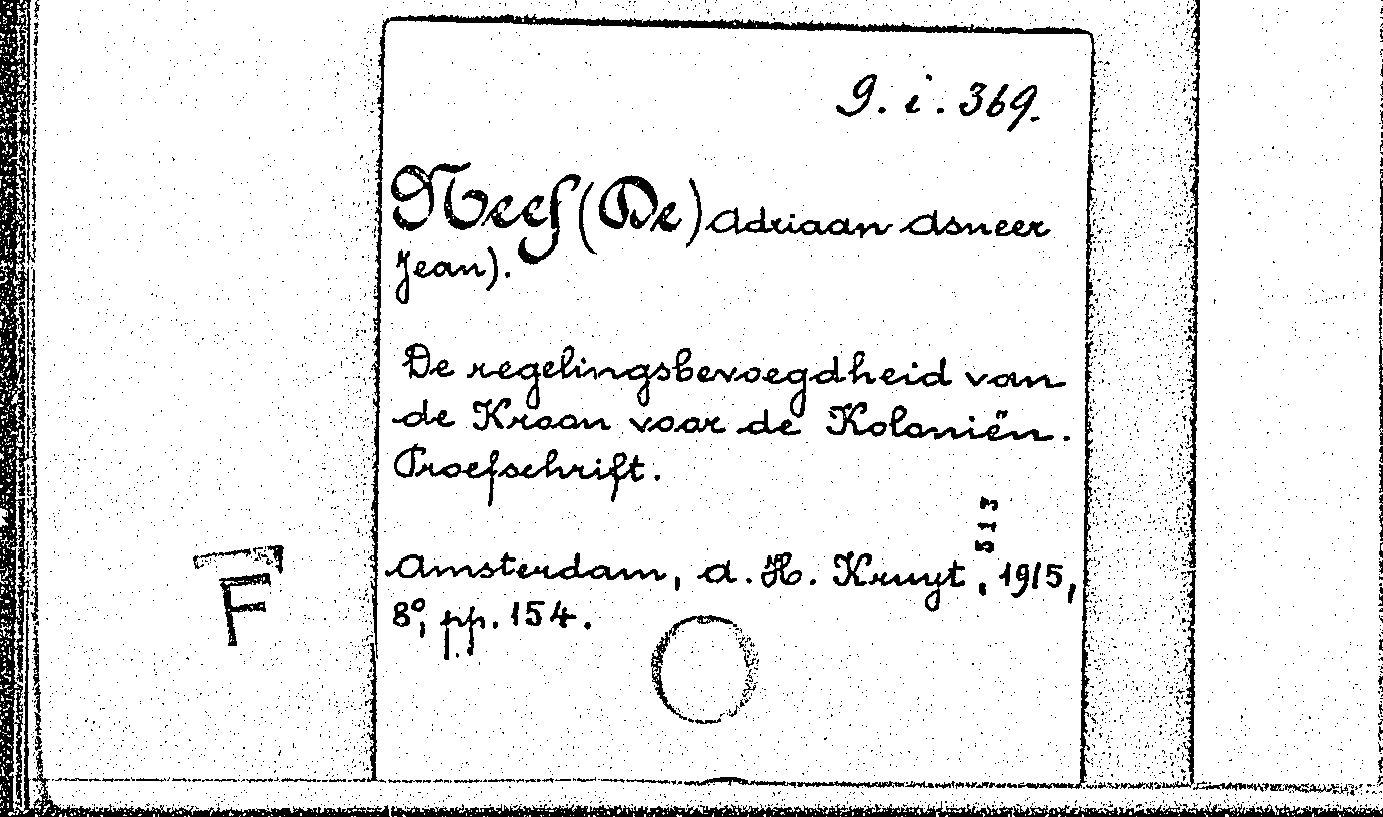 9. i. 369.
Neef (De) Adriaan Asueer
Jean).
De regelingsbevoegdheid van
de Kroon voor de Koloniën.
Proefschrift.
513
Amsterdam, A. H. Kruyt, 1915,
8°, pp. 154.
F